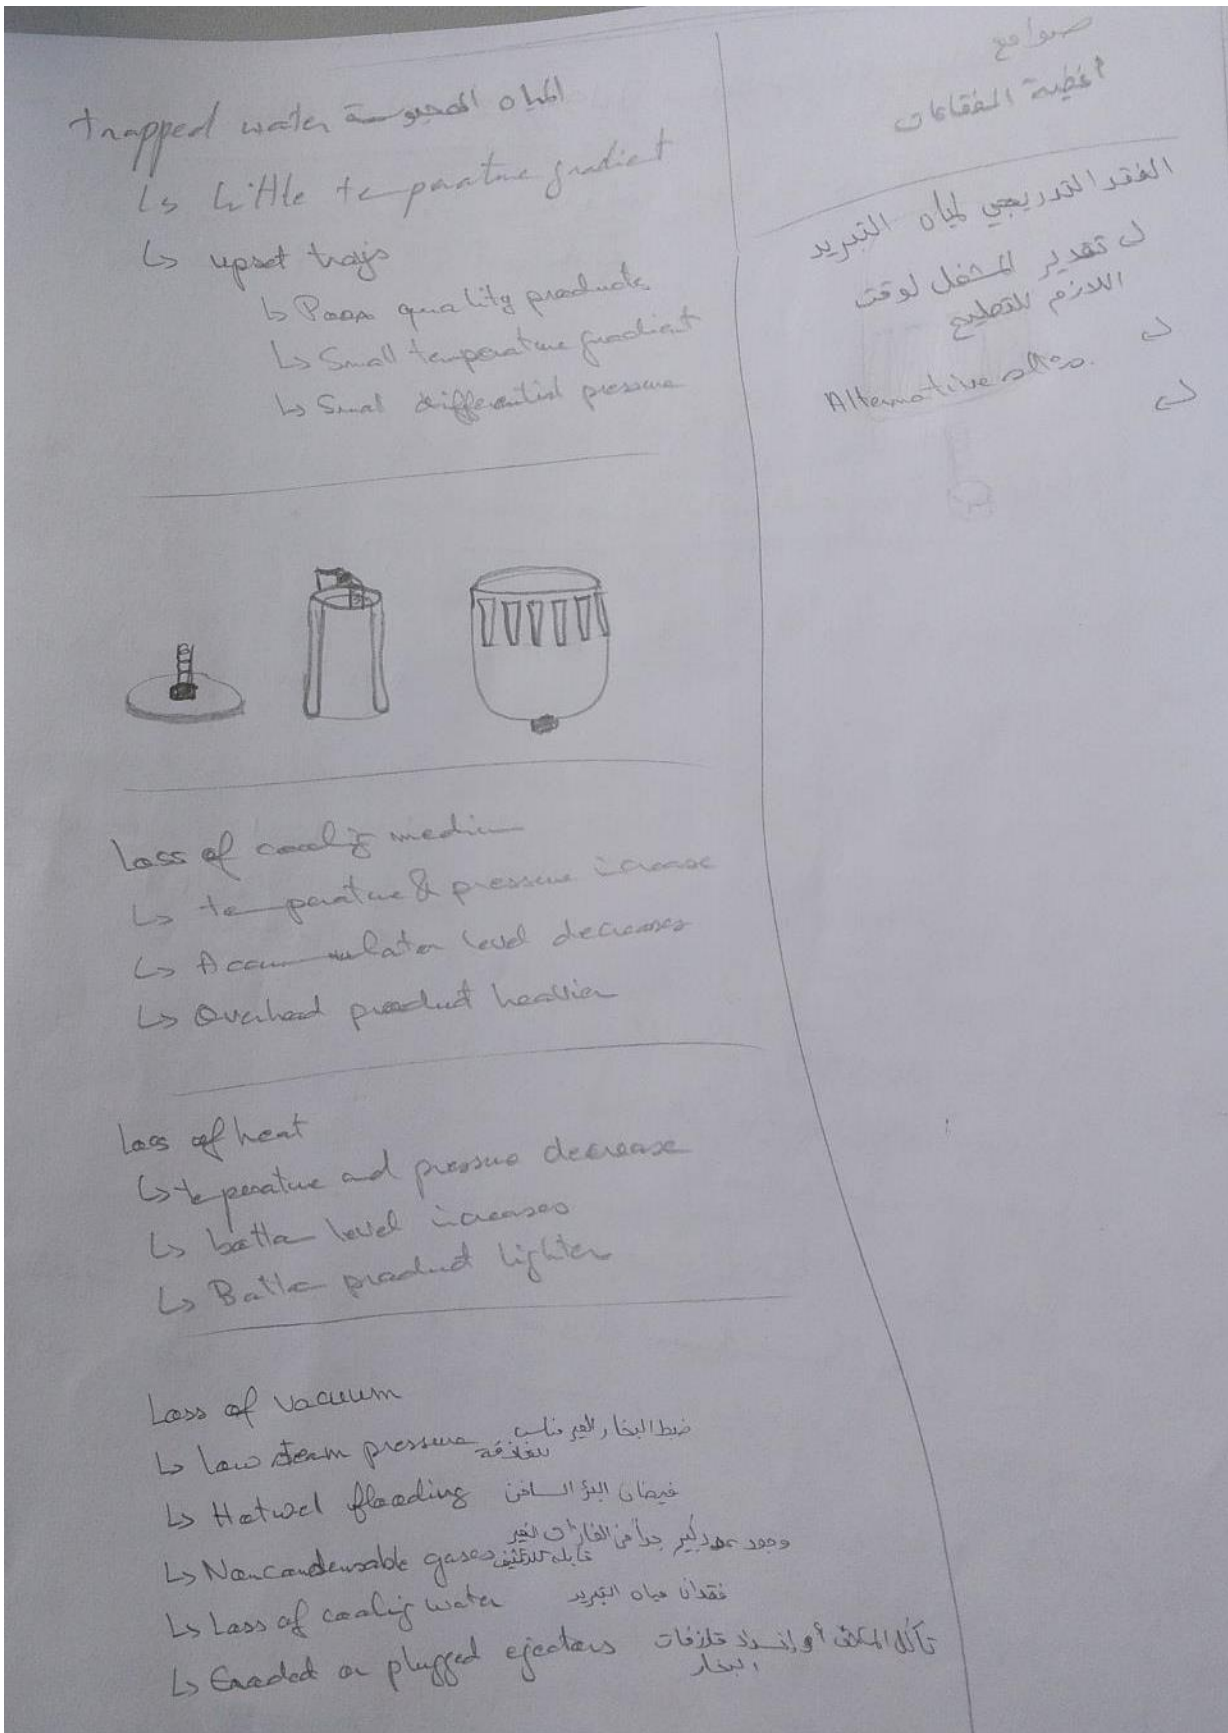 trapped water المياه المحبوسة
↳ Little temperature gradient
↳ upset trays
↳ Poor quality products
↳ Small temperature gradient
↳ Smal differential pressure
Loss of cooling medium
↳ temperature & pressure increase
↳ Accumulator level decreases
↳ Overhead product heavier
Loss of heat
↳ temperature and pressure decrease
↳ bottom level increases
↳ Bottom product lighter
Loss of vacuum
↳ low steam pressure ضبط البخار الغير مناسب
للقاذفة
↳ Hotwel flooding فيضان البئر الساخن
↳ Noncondensable gases وجود عدد كبير جداً من الغازات الغير
قابلة للتكثيف
↳ Loss of cooling water فقدان مياه التبريد
↳ Eroded or plugged ejectors تآكل المكثف أو إنسداد قاذفات
البخار
صوامع
أغطية الفقاعات
الفقد التدريجي لمياه التبريد
تقدير المشغل لوقت
اللازم للتصليح
Alternative